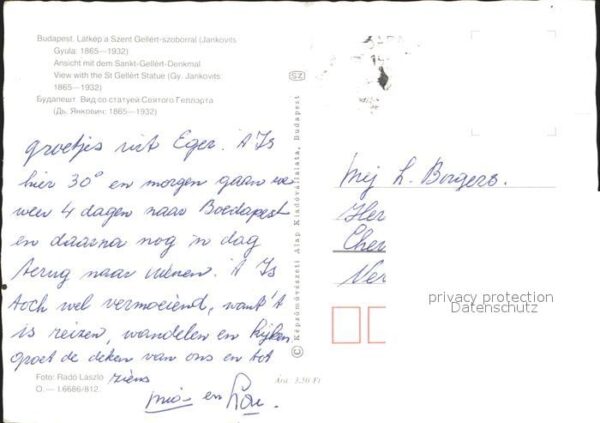 Budapest. Látkép a Szent Gellért-szoborral (Jankovits
Gyula: 1865—1932)
Ansicht mit dem Sankt-Gellért-Denkmal
View with the St Gellért Statue (Gy. Jankovits:
1865—1932)
Будапешт. Вид со статуей Святого Геллэрта
(Дь. Янкович: 1865—1932)
groetjes uit Eger. 't Is
hier 30° en morgen gaan we
weer 4 dagen naar Boedapest
en daarna nog 'n dag
terug naar Wenen. 't Is
toch wel vermoeiend, want 't
is reizen, wandelen en kijken.
groet de deken van ons en tot
ziens
en
Foto: Radó László
O. — I.6686/812.
Ára: 3.50 Ft
SZ
© Képzőművészeti Alap Kiadóvállalata, Budapest
Mej L. Borgers.
Her
Cher
Ver
privacy protection
Datenschutz